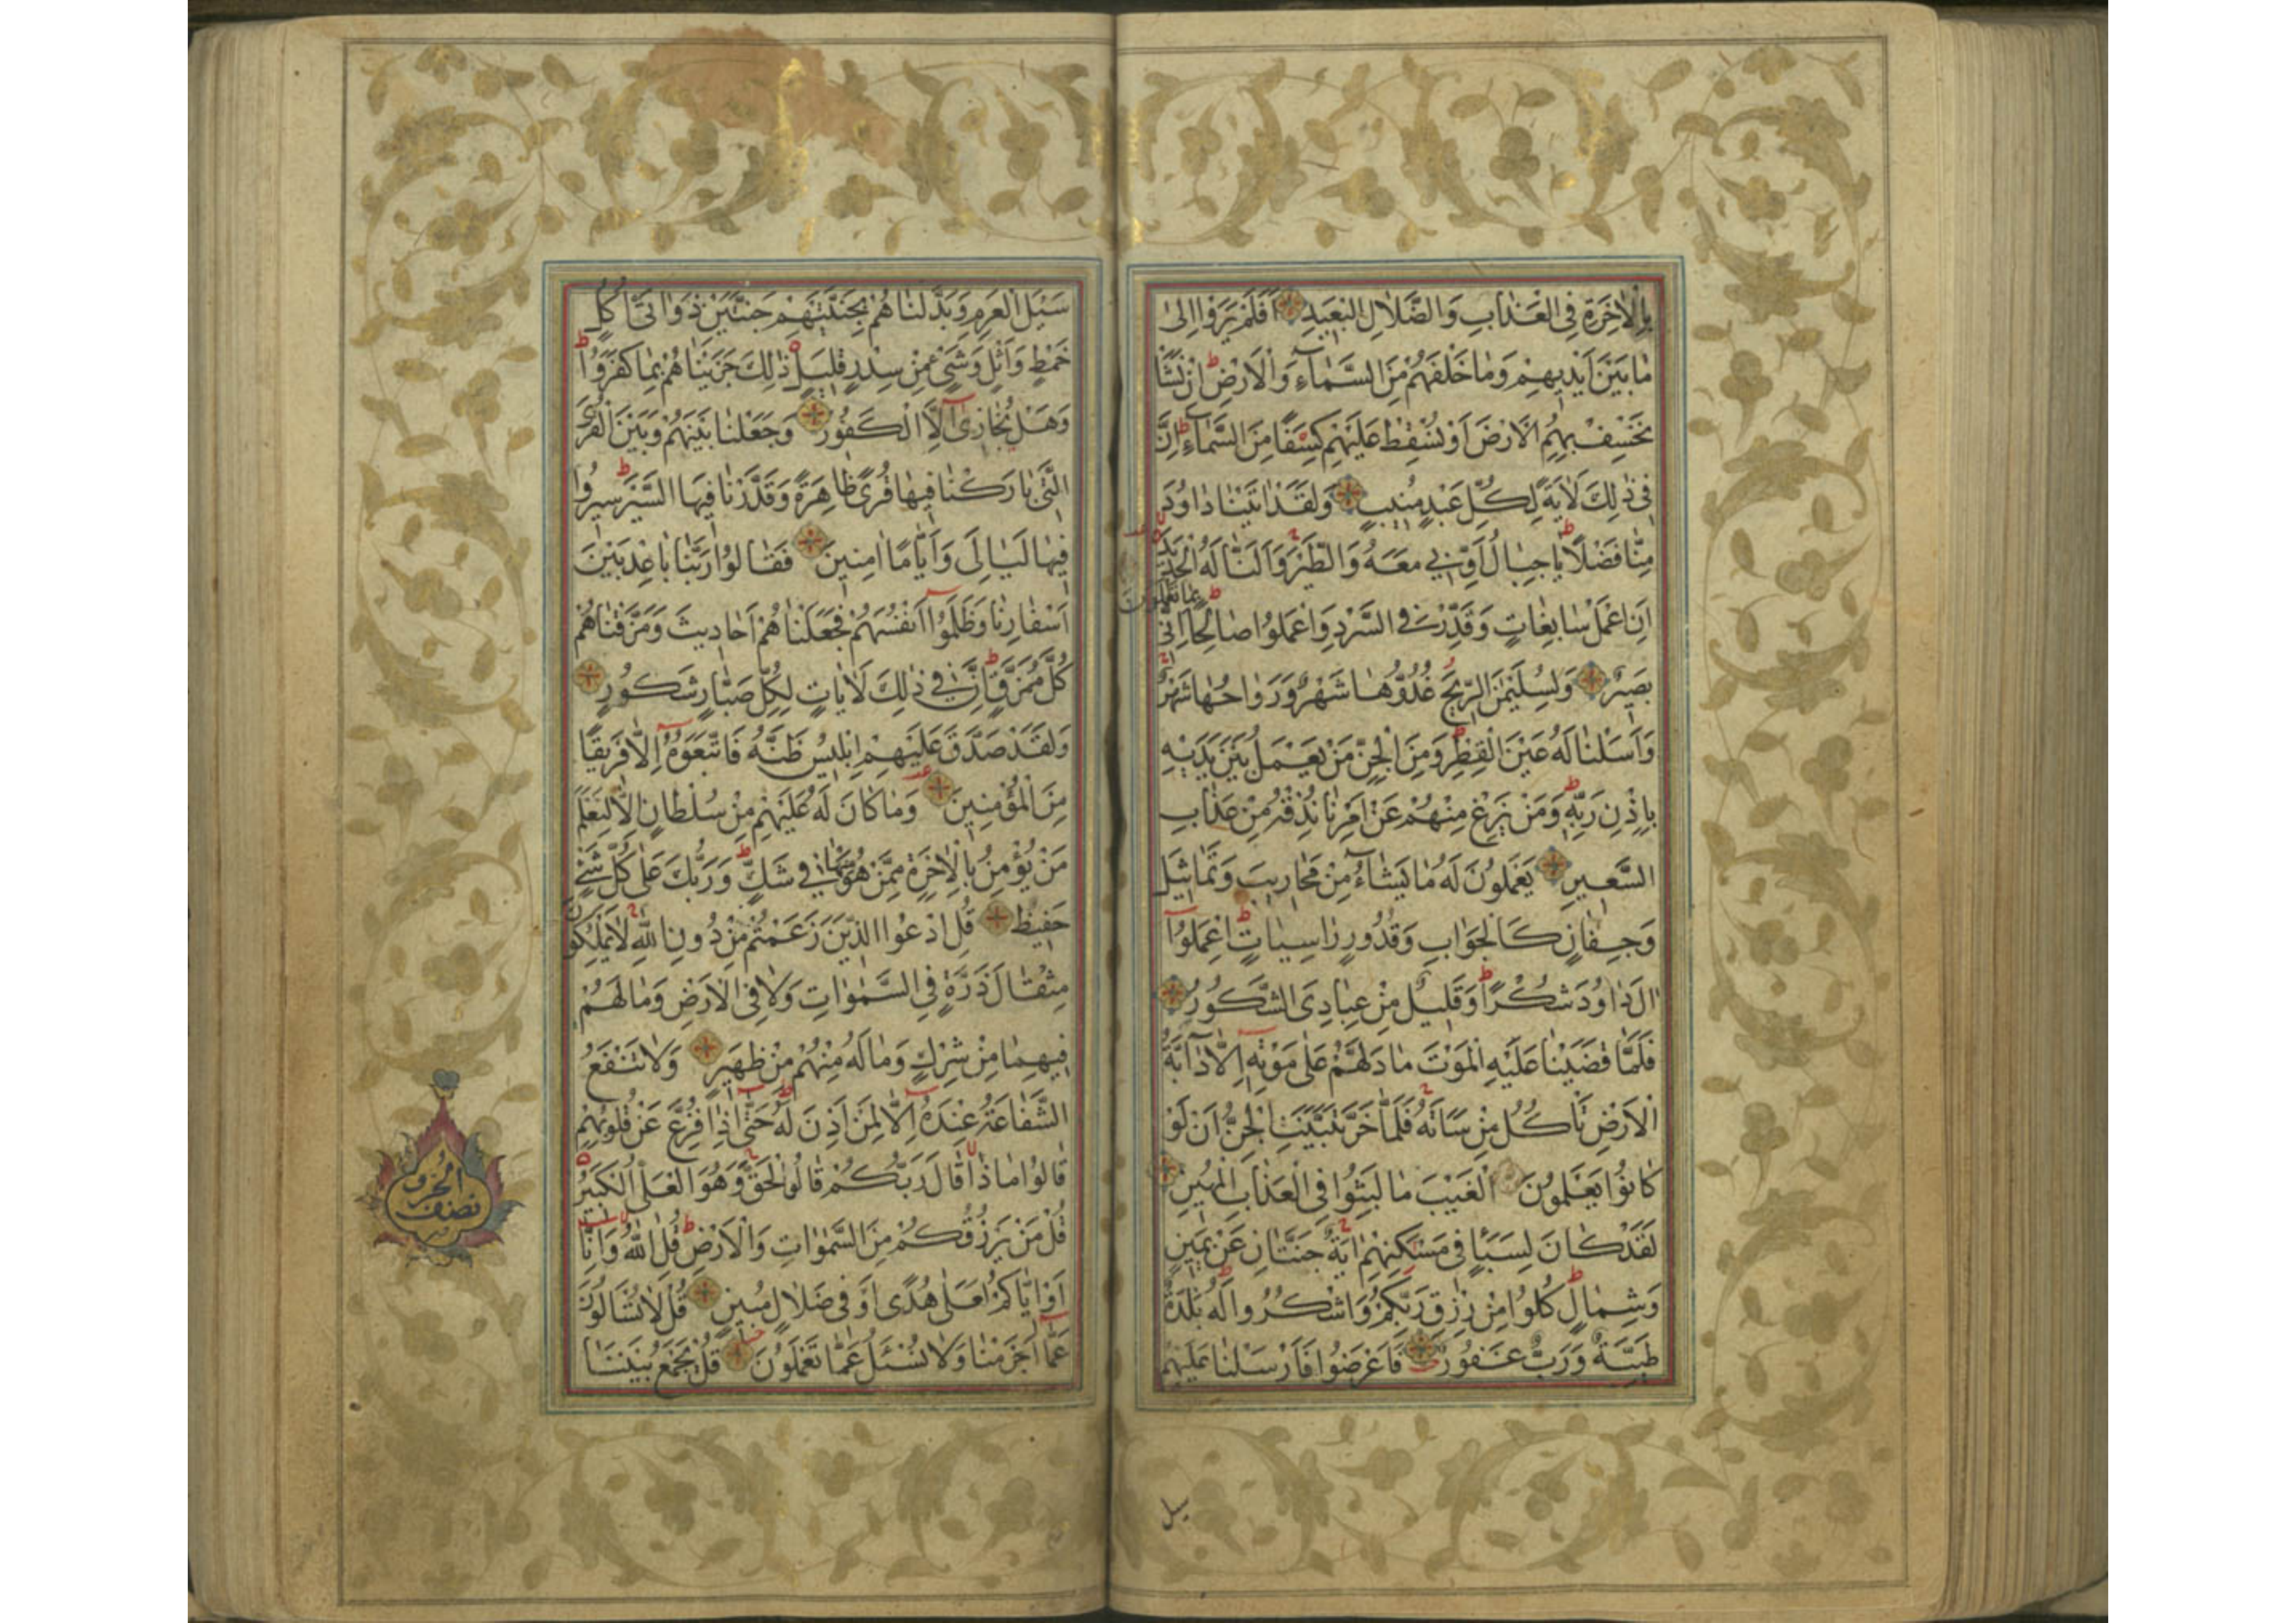 بِالْاٰخِرَةِ فِى الْعَذَابِ وَالضَّلَالِ الْبَعِيدِ اَفَلَمْ يَرَوْا اِلىٰ
مَا بَيْنَ اَيْدِيهِمْ وَمَا خَلْفَهُمْ مِنَ السَّمَاءِ وَالْاَرْضِ اِنْ نَشَأْ
نَخْسِفْ بِهِمُ الْاَرْضَ اَوْ نُسْقِطْ عَلَيْهِمْ كِسَفًا مِنَ السَّمَاءِ اِنَّ
فِى ذٰلِكَ لَاٰيَةً لِكُلِّ عَبْدٍ مُنِيبٍ وَلَقَدْ اٰتَيْنَا دَاوُدَ
مِنَّا فَضْلًا يَا جِبَالُ اَوِّبِى مَعَهُ وَالطَّيْرَ وَاَلَنَّا لَهُ الْحَدِيدَ
اَنِ اعْمَلْ سَابِغَاتٍ وَقَدِّرْ فِى السَّرْدِ وَاعْمَلُوا صَالِحًا اِنِّى
بِمَا تَعْمَلُونَ
بَصِيرٌ وَلِسُلَيْمٰنَ الرِّيحَ غُدُوُّهَا شَهْرٌ وَرَوَاحُهَا شَهْرٌ
وَاَسَلْنَا لَهُ عَيْنَ الْقِطْرِ وَمِنَ الْجِنِّ مَنْ يَعْمَلُ بَيْنَ يَدَيْهِ
بِاِذْنِ رَبِّهِ وَمَنْ يَزِغْ مِنْهُمْ عَنْ اَمْرِنَا نُذِقْهُ مِنْ عَذَابِ
السَّعِيرِ يَعْمَلُونَ لَهُ مَا يَشَاءُ مِنْ مَحَارِيبَ وَتَمَاثِيلَ
وَجِفَانٍ كَالْجَوَابِ وَقُدُورٍ رَاسِيَاتٍ اعْمَلُوا
اٰلَ دَاوُدَ شُكْرًا وَقَلِيلٌ مِنْ عِبَادِىَ الشَّكُورُ
فَلَمَّا قَضَيْنَا عَلَيْهِ الْمَوْتَ مَا دَلَّهُمْ عَلىٰ مَوْتِهِ اِلَّا دَابَّةُ
الْاَرْضِ تَأْكُلُ مِنْسَاَتَهُ فَلَمَّا خَرَّ تَبَيَّنَتِ الْجِنُّ اَنْ لَوْ
كَانُوا يَعْلَمُونَ الْغَيْبَ مَا لَبِثُوا فِى الْعَذَابِ الْمُهِينِ
لَقَدْ كَانَ لِسَبَأٍ فِى مَسْكَنِهِمْ اٰيَةٌ جَنَّتَانِ عَنْ يَمِينٍ
وَشِمَالٍ كُلُوا مِنْ رِزْقِ رَبِّكُمْ وَاشْكُرُوا لَهُ بَلْدَةٌ
طَيِّبَةٌ وَرَبٌّ غَفُورٌ فَاَعْرَضُوا فَاَرْسَلْنَا عَلَيْهِمْ
سيل
سَيْلَ الْعَرِمِ وَبَدَّلْنَاهُمْ بِجَنَّتَيْهِمْ جَنَّتَيْنِ ذَوَاتَىْ اُكُلٍ
خَمْطٍ وَاَثْلٍ وَشَىْءٍ مِنْ سِدْرٍ قَلِيلٍ ذٰلِكَ جَزَيْنَاهُمْ بِمَا كَفَرُوا
وَهَلْ نُجَازِى اِلَّا الْكَفُورَ وَجَعَلْنَا بَيْنَهُمْ وَبَيْنَ الْقُرَى
الَّتِى بَارَكْنَا فِيهَا قُرًى ظَاهِرَةً وَقَدَّرْنَا فِيهَا السَّيْرَ سِيرُوا
فِيهَا لَيَالِىَ وَاَيَّامًا اٰمِنِينَ فَقَالُوا رَبَّنَا بَاعِدْ بَيْنَ
اَسْفَارِنَا وَظَلَمُوا اَنْفُسَهُمْ فَجَعَلْنَاهُمْ اَحَادِيثَ وَمَزَّقْنَاهُمْ
كُلَّ مُمَزَّقٍ اِنَّ فِى ذٰلِكَ لَاٰيَاتٍ لِكُلِّ صَبَّارٍ شَكُورٍ
وَلَقَدْ صَدَّقَ عَلَيْهِمْ اِبْلِيسُ ظَنَّهُ فَاتَّبَعُوهُ اِلَّا فَرِيقًا
مِنَ الْمُؤْمِنِينَ وَمَا كَانَ لَهُ عَلَيْهِمْ مِنْ سُلْطَانٍ اِلَّا لِنَعْلَمَ
مَنْ يُؤْمِنُ بِالْاٰخِرَةِ مِمَّنْ هُوَ مِنْهَا فِى شَكٍّ وَرَبُّكَ عَلىٰ كُلِّ شَىْءٍ
حَفِيظٌ قُلِ ادْعُوا الَّذِينَ زَعَمْتُمْ مِنْ دُونِ اللّٰهِ لَا يَمْلِكُونَ
مِثْقَالَ ذَرَّةٍ فِى السَّمٰوَاتِ وَلَا فِى الْاَرْضِ وَمَا لَهُمْ
فِيهِمَا مِنْ شِرْكٍ وَمَا لَهُ مِنْهُمْ مِنْ ظَهِيرٍ وَلَا تَنْفَعُ
الشَّفَاعَةُ عِنْدَهُ اِلَّا لِمَنْ اَذِنَ لَهُ حَتّٰى اِذَا فُزِّعَ عَنْ قُلُوبِهِمْ
قَالُوا مَاذَا قَالَ رَبُّكُمْ قَالُوا الْحَقَّ وَهُوَ الْعَلِىُّ الْكَبِيرُ
قُلْ مَنْ يَرْزُقُكُمْ مِنَ السَّمٰوَاتِ وَالْاَرْضِ قُلِ اللّٰهُ وَاِنَّا
اَوْ اِيَّاكُمْ لَعَلىٰ هُدًى اَوْ فِى ضَلَالٍ مُبِينٍ قُلْ لَا تُسْأَلُونَ
عَمَّا اَجْرَمْنَا وَلَا نُسْئَلُ عَمَّا تَعْمَلُونَ قُلْ يَجْمَعُ بَيْنَنَا
نصف